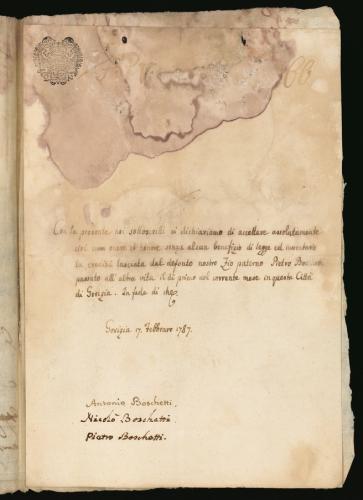 Con la presente noi sodoscritti ci dichiariamo di accettare assolutamente
senza alcun benefizio di legge ed inventario
la eredità lasciata dal defonto nostro Zio paterno Pietro Boschetti
passato all'altra vita il di primo del corrente mese in questa Città
di Gorizia. In fede di che
Gorizia 17. Febbraro 1787.
Antonio Boschetti.
Nicolò Boschetti.
Pietro Boschetti.